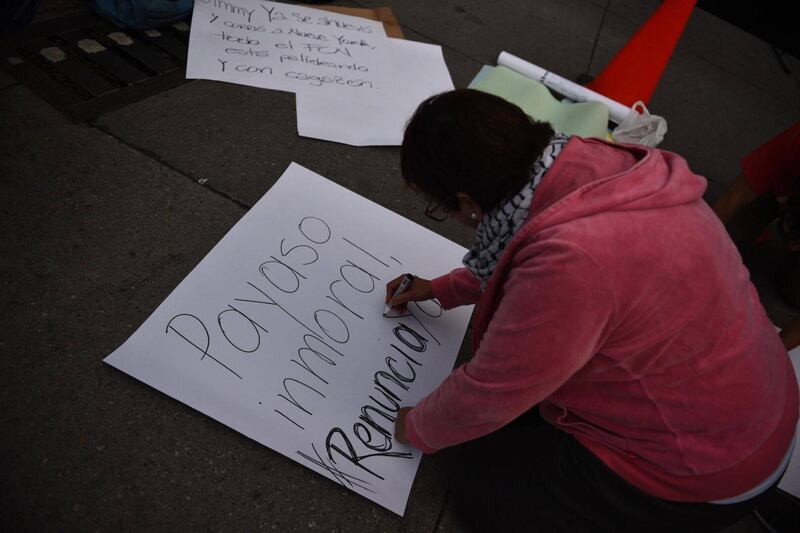 Jimmy Ya se anuevo
y corrio a Nueva York,
todo el FCN
esta polideando
y con cagazón.
Payaso
inmoral,
#Renuncia Ya